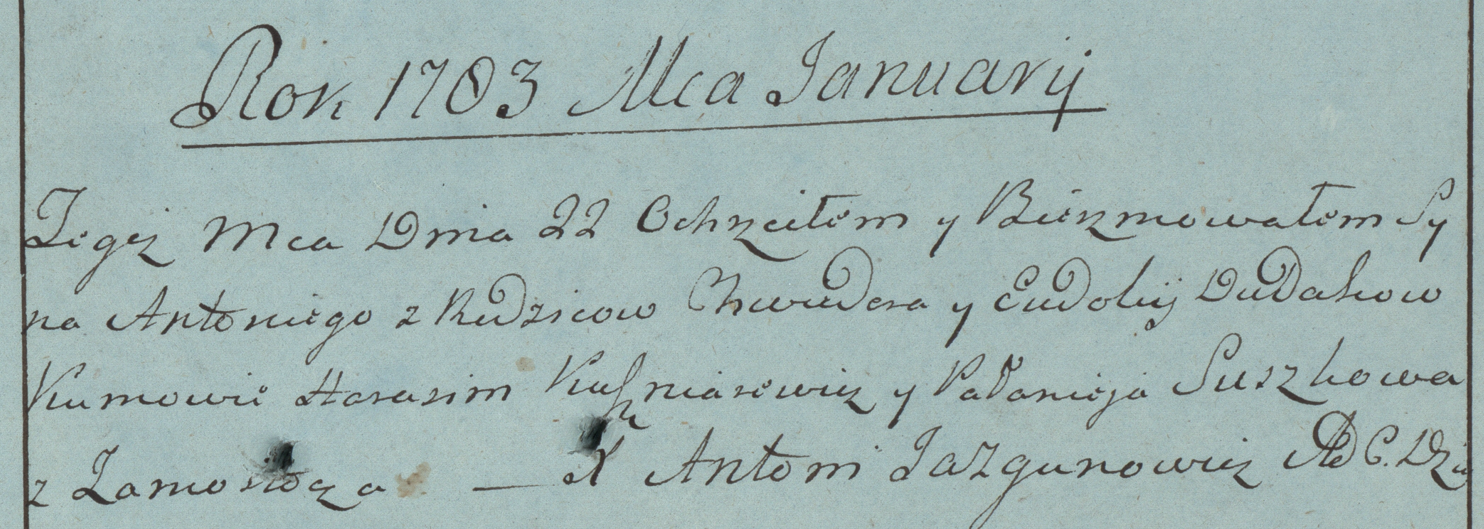 Rok 1783 Mca Januarij
Tegż Mca Dnia 22 Ochrzciłem y Bierzmowałem Sy
na Antoniego z Rodzicow Chwedora y Eudokij Dudakow
Kumowie Harasim Kuszniarewicz y Pałanieja Suszkowa
z Zamosto cza — X Antoni Jazgunowicz